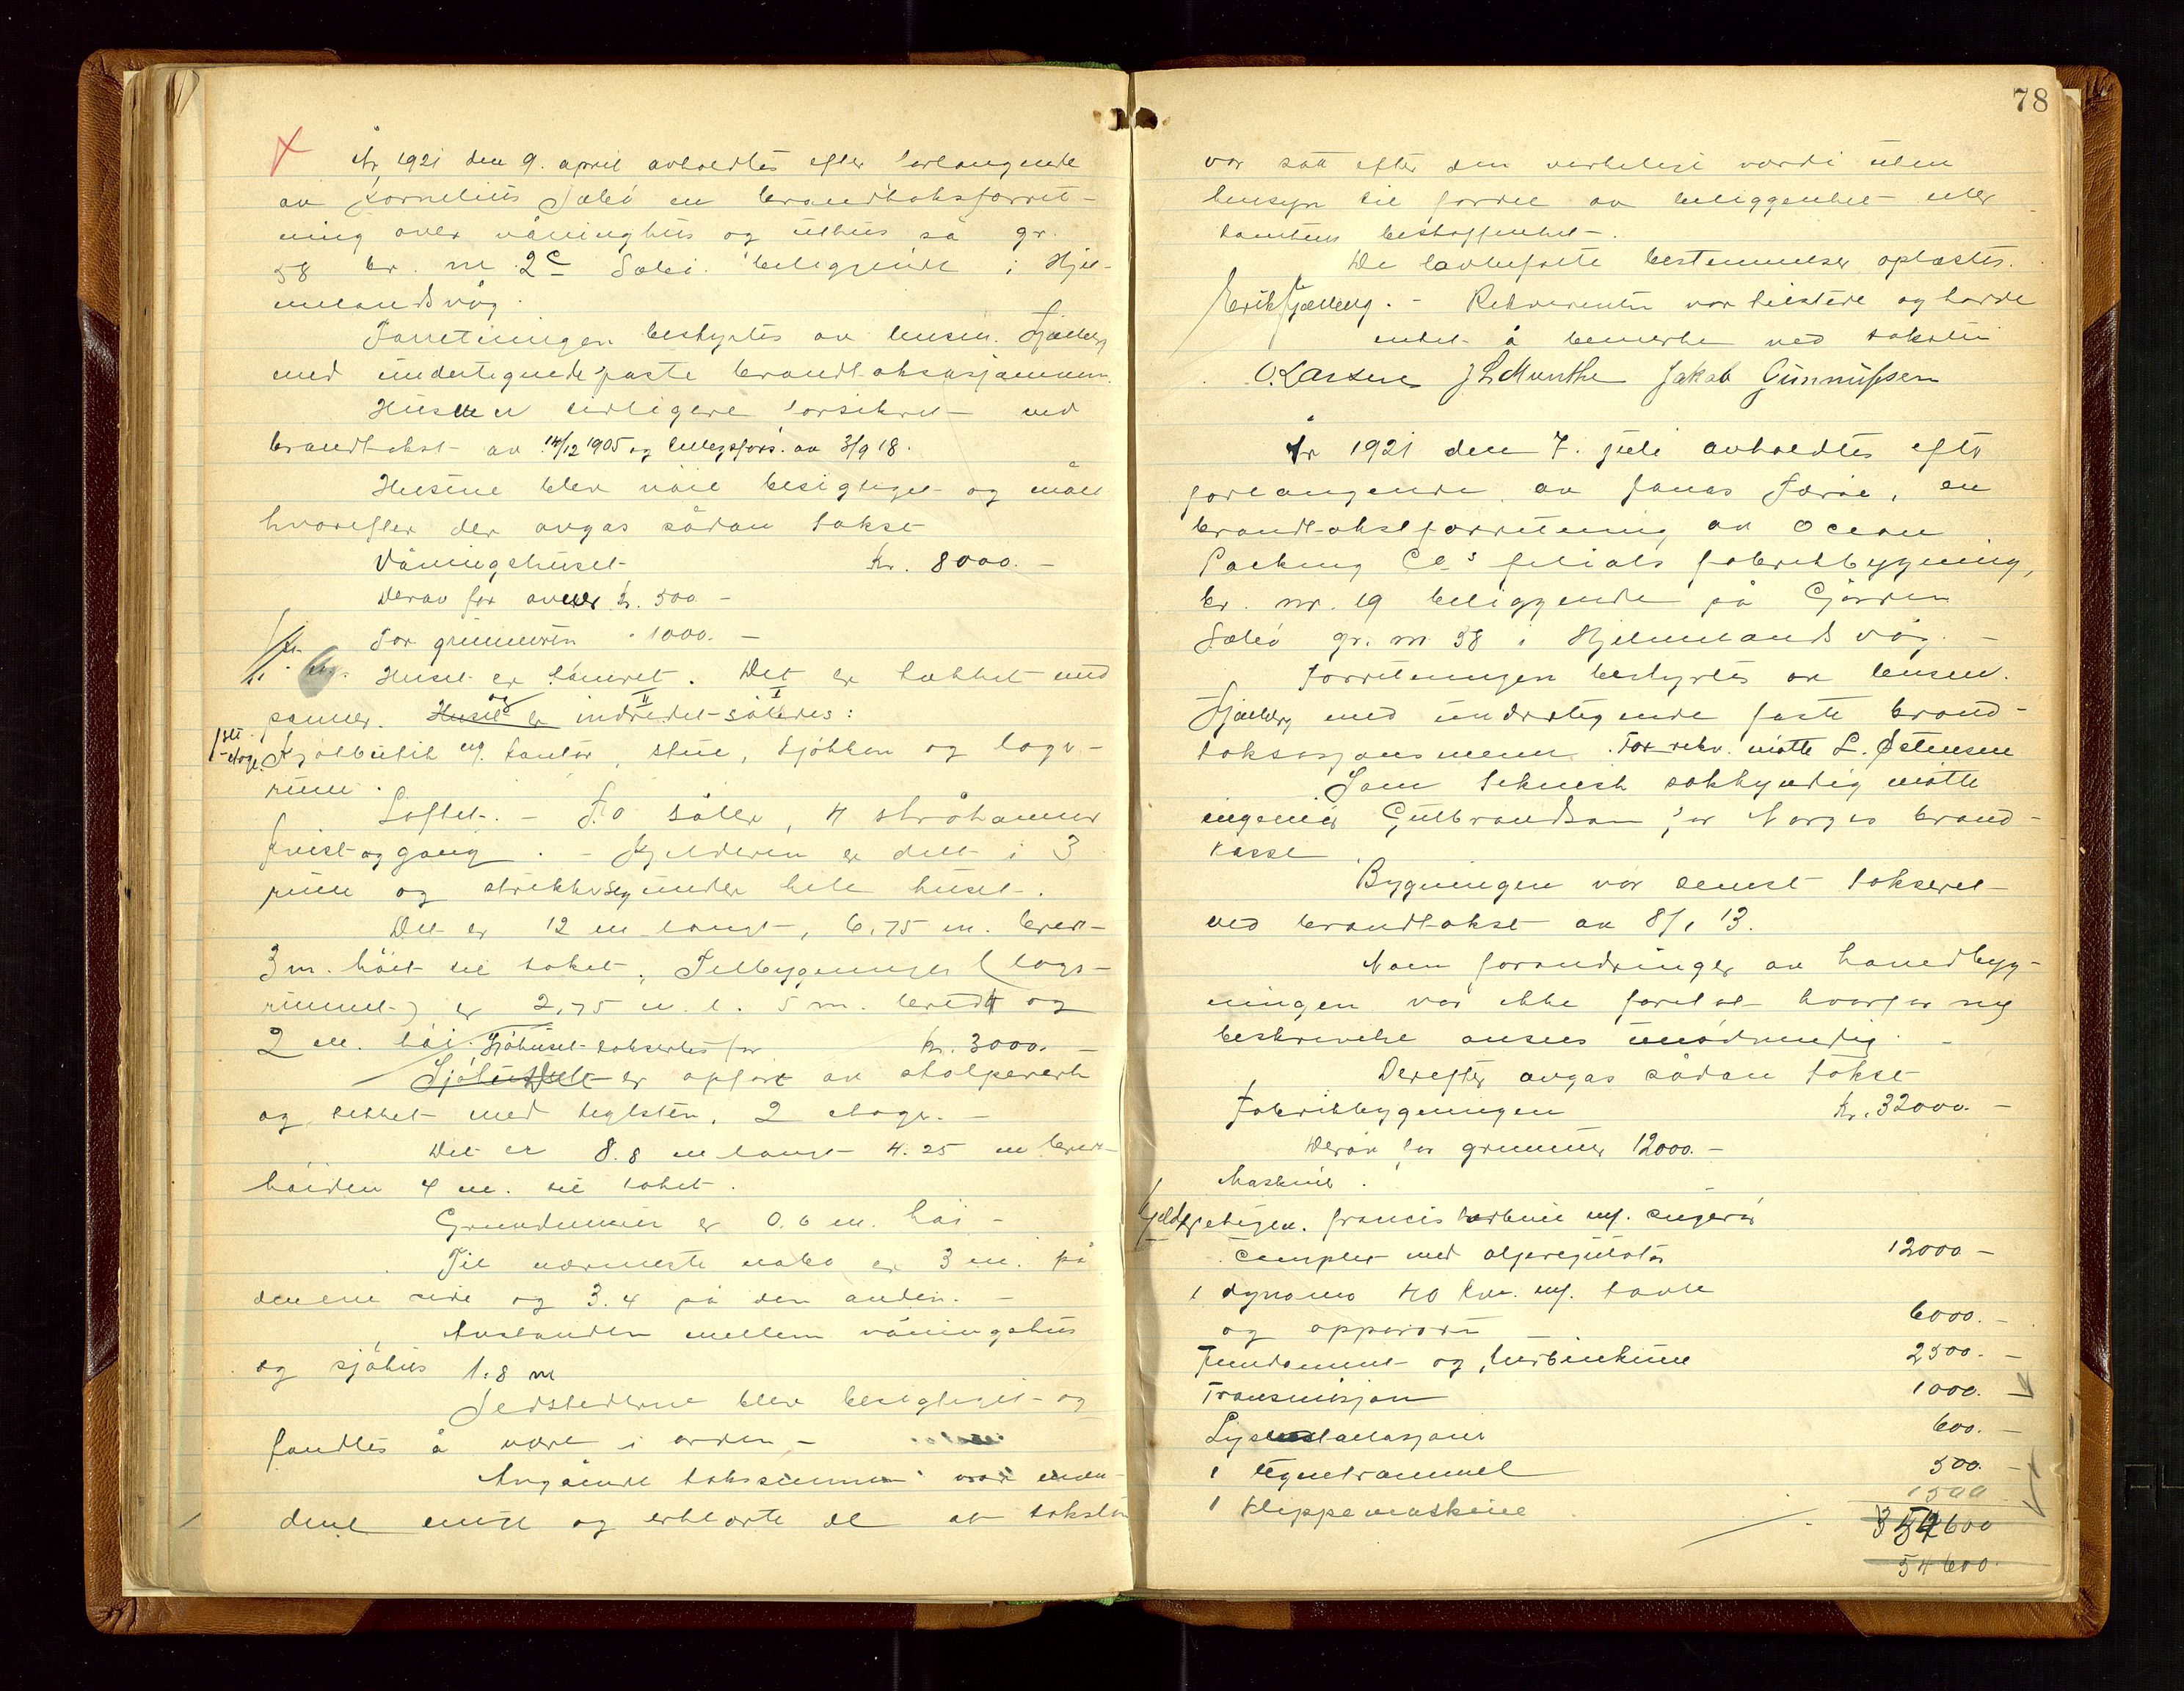 År 1921 den 9. april avholdtes efter forlangende
av Kornelius Sæbø en brandtaksforret-
ning over våninghus og uthus på gr.
58 br. nr. 2c Sæbø beliggende i Hjel-
melandsvåg.
Forretningen bestyrtes av lensm. Fjælberg
med undertegnede faste brandtaksasjonsmenn.
Huset er tidligere forsikret ved
brandtakst av 14/12 1905 og tilleggsfors. av 3/9 18.
Husene blev nøie besigtiget og målt
hvorefter der avgas sådan takst
Våningshuset kr. 8000.-
Derav for ovner kr. 500 -
For grunmuren " 1000. -
Huset er tømret. Det er tækket med
panner. Huset og er indredet således:
1ste etage. Kjøkken m/. kontor, stue, kjøkken og lager-
rum.
Loftet. - To saler, 4 stråkamre
kvist og gang. - Kjelderen er delt i 3
rum og strekker seg under hele huset.
Det er 12 m langt, 6,75 m. bredt
3 m. høit til taket. Tilbygningen (lager-
rummet) er 2,75 m. l. 5 m. bredt og
2 m. høi. Sjøhuset taksertes for kr. 3000. -
Sjøhuset er opført av stolpeverk
og tekket med teglsten, 2 etager. -
Det er 8.8 m langt 4.25 m bredt
høiden 4 m. til taket.
Grundmuren er 0.6 m. høi -
Til nærmeste nabo er 3 m. på
den ene side og 3.4 på den anden. -
Avstanden mellem våningshus
og sjøhus 1.8 m
Ildstederne blev besigtiget og
fandtes å være i orden -
Angående takssummen var
enige og erklærte de at taksten
78
var satt efter den virkelige værdi uten
hensyn til fordel av beliggenhet eller
tomtens beskaffenhet.
De lovbefalte bestemmelser oplæstes.
Erik Fjælberg. - Rekvirenten var tilstede og hadde
intet å bemerke ved taksten
O. Larsen J L Munthe Jakob Gunnufsen
År 1921 den 7. juli avholdtes efter
forlangende av Jonas Færøe, en
brandtakstforretning av Ocean
Packing Co's filials fabrikbygning,
br. nr. 19 beliggende på Gjården
Sæbø gr. nr 58 i Hjelmelandsvåg. -
Forretningen bestyrtes av lensm.
Fjælberg med undertegnede faste brand-
taksasjonsmenn. For rekv. møtte L. Østensen
Som teknisk sakkyndig møtte
ingeniør Gulbrandsen for Norges brand-
kasse
Bygningen var senest taksert
ved brandtakst av 8/1 13.
Noen forandringer av hovedbyg-
ningen var ikke foretat hvorfor ny
beskrivelse ansees unødvendig. -
Derefter avgas sådan takst
Fabrikbygningen kr. 32000. -
Derav for grunmur 12000. -
Maskiner.
Kjelderetagen. francis turbine m/. sugerør
komplet med oljeregulator 12000 -
1 dynamo 40 kw. m/. tavle
og apparater 6000. -
Fundament og turbinkum 2500. -
Transmisjon 1000. -
Lysinstallasjon 600. -
1 tegnetrommel 500. -
1 Klippemaskine 1500
354600
54600.